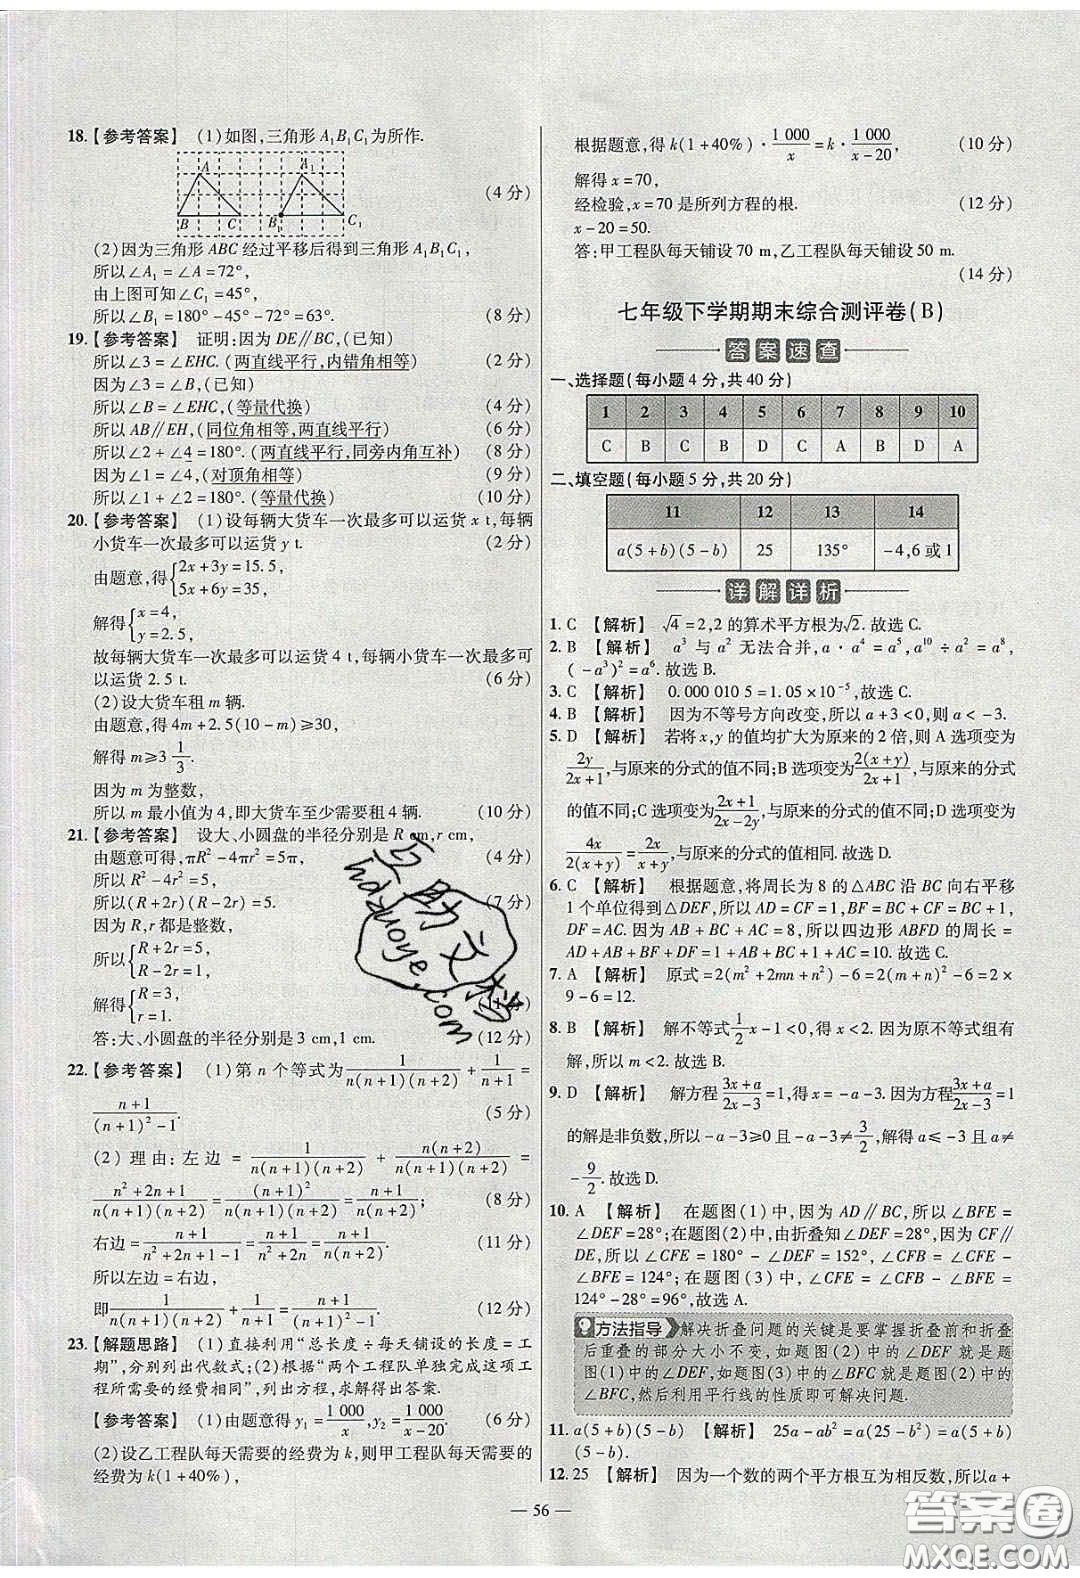 18.【参考答案】 (1)如图,三角形 A₁B₁C₁为所作.
A A₁
B C B₁ C₁
(4 分)
(2)因为三角形 ABC 经过平移后得到三角形 A₁B₁C₁,
所以∠A₁=∠A=72°,
由上图可知∠C₁=45°,
所以∠B₁=180°-45°-72°=63°. (8 分)
19.【参考答案】 证明:因为 DE∥BC,(已知)
所以∠3=∠EHC.(两直线平行,内错角相等) (2 分)
因为∠3=∠B,(已知)
所以∠B=∠EHC,(等量代换) (4 分)
所以 AB∥EH,(同位角相等,两直线平行) (6 分)
所以∠2+∠4=180°.(两直线平行,同旁内角互补) (8 分)
因为∠1=∠4,(对顶角相等) (9 分)
所以∠1+∠2=180°.(等量代换) (10 分)
20.【参考答案】 (1)设每辆大货车一次最多可以运货 x t,每辆
小货车一次最多可以运货 y t. (2 分)
由题意,得{2x+3y=15.5,
5x+6y=35,
解得{x=4,
y=2.5,
故每辆大货车一次最多可以运货 4 t,每辆小货车一次最多可
以运货 2.5 t. (6 分)
(2)设大货车租 m 辆.
由题意,得 4m+2.5(10-m)≥30,
解得 m≥3 1/3.
因为 m 为整数,
所以 m 最小值为 4,即大货车至少需要租 4 辆. (10 分)
21.【参考答案】 设大、小圆盘的半径分别是 R cm,r cm,
由题意可得,πR²-4πr²=5π, (4 分)
所以 R²-4r²=5,
所以(R+2r)(R-2r)=5. (7 分)
因为 R,r 都是整数,
所以{R+2r=5,
R-2r=1,
解得{R=3,
r=1.
(11 分)
答:大、小圆盘的半径分别是 3 cm,1 cm. (12 分)
22.【参考答案】 (1)第 n 个等式为 1/(n(n+1)(n+2)) + 1/(n+1) =
(n+1)/((n+1)²-1). (5 分)
(2)理由:左边 = 1/(n(n+1)(n+2)) + n(n+2)/(n(n+1)(n+2)) =
(n²+2n+1)/(n(n+1)(n+2)) = (n+1)²/(n(n+1)(n+2)) = (n+1)/(n(n+2)); (8 分)
右边 = (n+1)/(n²+2n+1-1) = (n+1)/(n(n+2)), (11 分)
所以左边=右边,
即 1/(n(n+1)(n+2)) + 1/(n+1) = (n+1)/((n+1)²-1). (12 分)
23.【解题思路】 (1)直接利用“总长度÷每天铺设的长度=工
期”,分别列出代数式;(2)根据“两个工程队单独完成这项工
程所需要的经费相同”,列出方程,求解得出答案.
【参考答案】 (1)由题意得 y₁=1 000/x,y₂=1 000/(x-20). (6 分)
(2)设乙工程队每天需要的经费为 k,则甲工程队每天需要的
经费为 k(1+40%),
根据题意,得 k(1+40%)·1 000/x=k·1 000/(x-20), (10 分)
解得 x=70,
经检验,x=70 是所列方程的根. (12 分)
x-20=50.
答:甲工程队每天铺设 70 m,乙工程队每天铺设 50 m.
(14 分)
七年级下学期期末综合测评卷(B)
答案速查
一、选择题(每小题 4 分,共 40 分)
1 2 3 4 5 6 7 8 9 10
C B C B D C A B D A
二、填空题(每小题 5 分,共 20 分)
11 12 13 14
a(5+b)(5-b) 25 135° -4,6 或 1
详解详析
1. C 【解析】 √4=2,2 的算术平方根为√2.故选 C.
2. B 【解析】 a³ 与 a² 无法合并,a·a⁴=a⁵,a¹⁰÷a²=a⁸,
(-a³)²=a⁶.故选 B.
3. C 【解析】 0.000 010 5=1.05×10⁻⁵,故选 C.
4. B 【解析】 因为不等号方向改变,所以 a+3<0,则 a<-3.
5. D 【解析】 若将 x,y 的值均扩大为原来的 2 倍,则 A 选项变为
2y/(2x+1),与原来的分式的值不同;B 选项变为 2(x+y)/(2x+1),与原来的分式
的值不同;C 选项变为 (2x+1)/(2x-2y),与原来的分式的值不同;D 选项变为
4x/(2(x+y))=2x/(x+y),与原来的分式的值相同.故选 D.
6. C 【解析】 根据题意,将周长为 8 的△ABC 沿 BC 向右平移
1 个单位得到△DEF,所以 AD=CF=1,BF=BC+CF=BC+1,
DF=AC.因为 AB+BC+AC=8,所以四边形 ABFD 的周长=
AD+AB+BF+DF=1+AB+BC+1+AC=10.故选 C.
7. A 【解析】 原式=2(m²+2mn+n²)-6=2(m+n)²-6=2×
9-6=12.
8. B 【解析】 解不等式 1/2 x-1<0,得 x<2.因为原不等式组有
解,所以 m<2.故选 B.
9. D 【解析】 解方程 (3x+a)/(2x-3)=1,得 x=-a-3.因为方程 (3x+a)/(2x-3)=1
的解是非负数,所以-a-3≥0 且-a-3≠3/2,解得 a≤-3 且 a≠
-9/2.故选 D.
10. A 【解析】 在题图(1)中,因为 AD∥BC,所以∠BFE=
∠DEF=28°;在题图(2)中,由折叠知∠DEF=28°,因为 CF∥
DE,所以∠CFE=180°-∠DEF=152°,∠CFB=∠CFE-
∠BFE=124°;在题图(3)中,∠CFE=∠CFB-∠BFE=
124°-28°=96°,故选 A.
方法指导 解决折叠问题的关键是要掌握折叠前和折叠
后重叠的部分大小不变,如题图(2)中的∠DEF 就是题
图(1)中的∠DEF,如题图(3)中的∠BFC 就是题图(2)中的
∠BFC,然后利用平行线的性质即可解决问题.
11. a(5+b)(5-b) 【解析】 25a-ab²=a(25-b²)=a(5+b)
(5-b).
12. 25 【解析】 因为一个数的两个平方根互为相反数,所以 a+
— 56 —
hdzuoye.com
答案圈
MXQE.COM